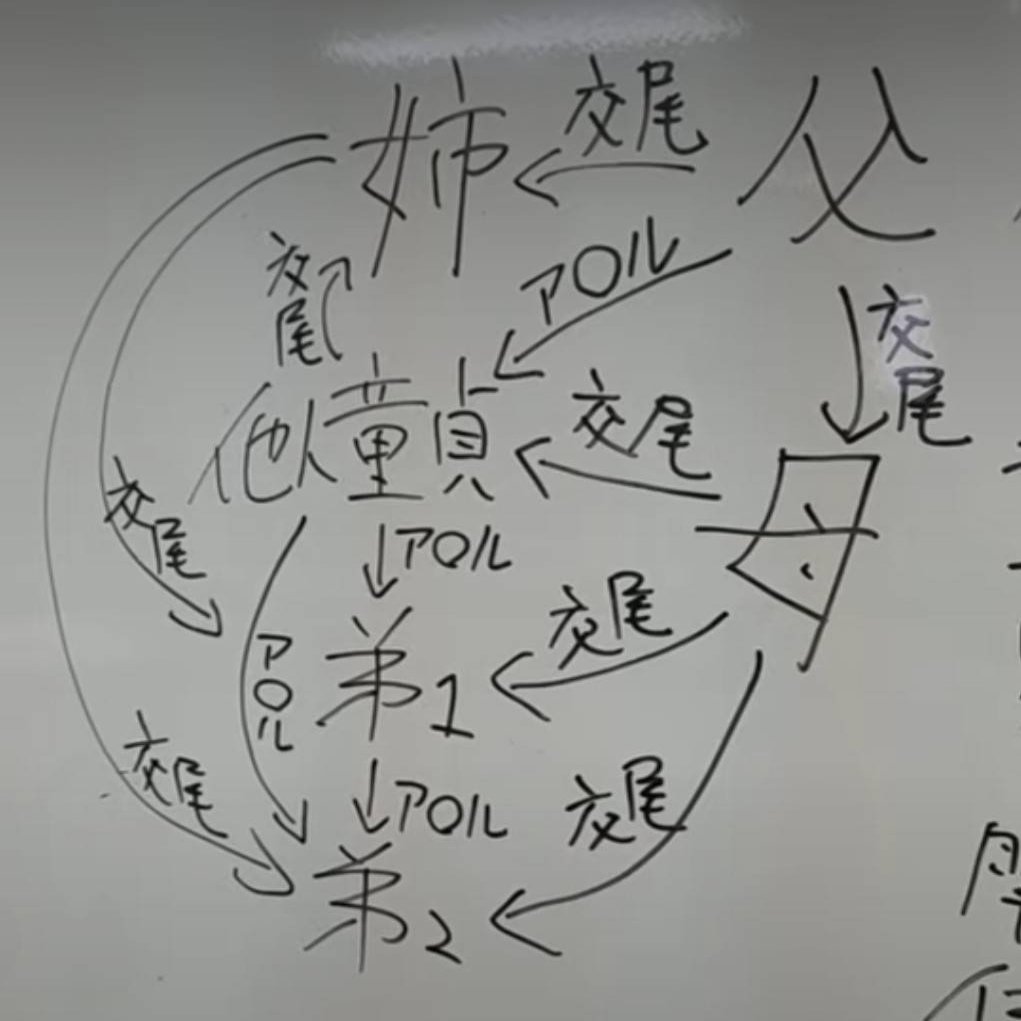 姉
交尾
父
アOル
交尾
交尾
童貞
交尾
交尾
アOル
アOル
弟1
交尾
交尾
アOル
弟2
交尾